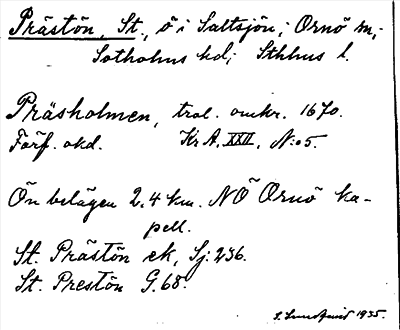 Prästön, St., ö i Saltsjön; Ornö sn,
Sotholms hd; Sthlms l.
Präsholmen, trol. omkr. 1670.
Förf. okd. Kr A. XXII, N:o 5.
Ön belägen 2,4 km. NÖ Ornö ka-
pell.
St. Prästön ek, Sj: 236.
St. Prestön G. 68.
1935.